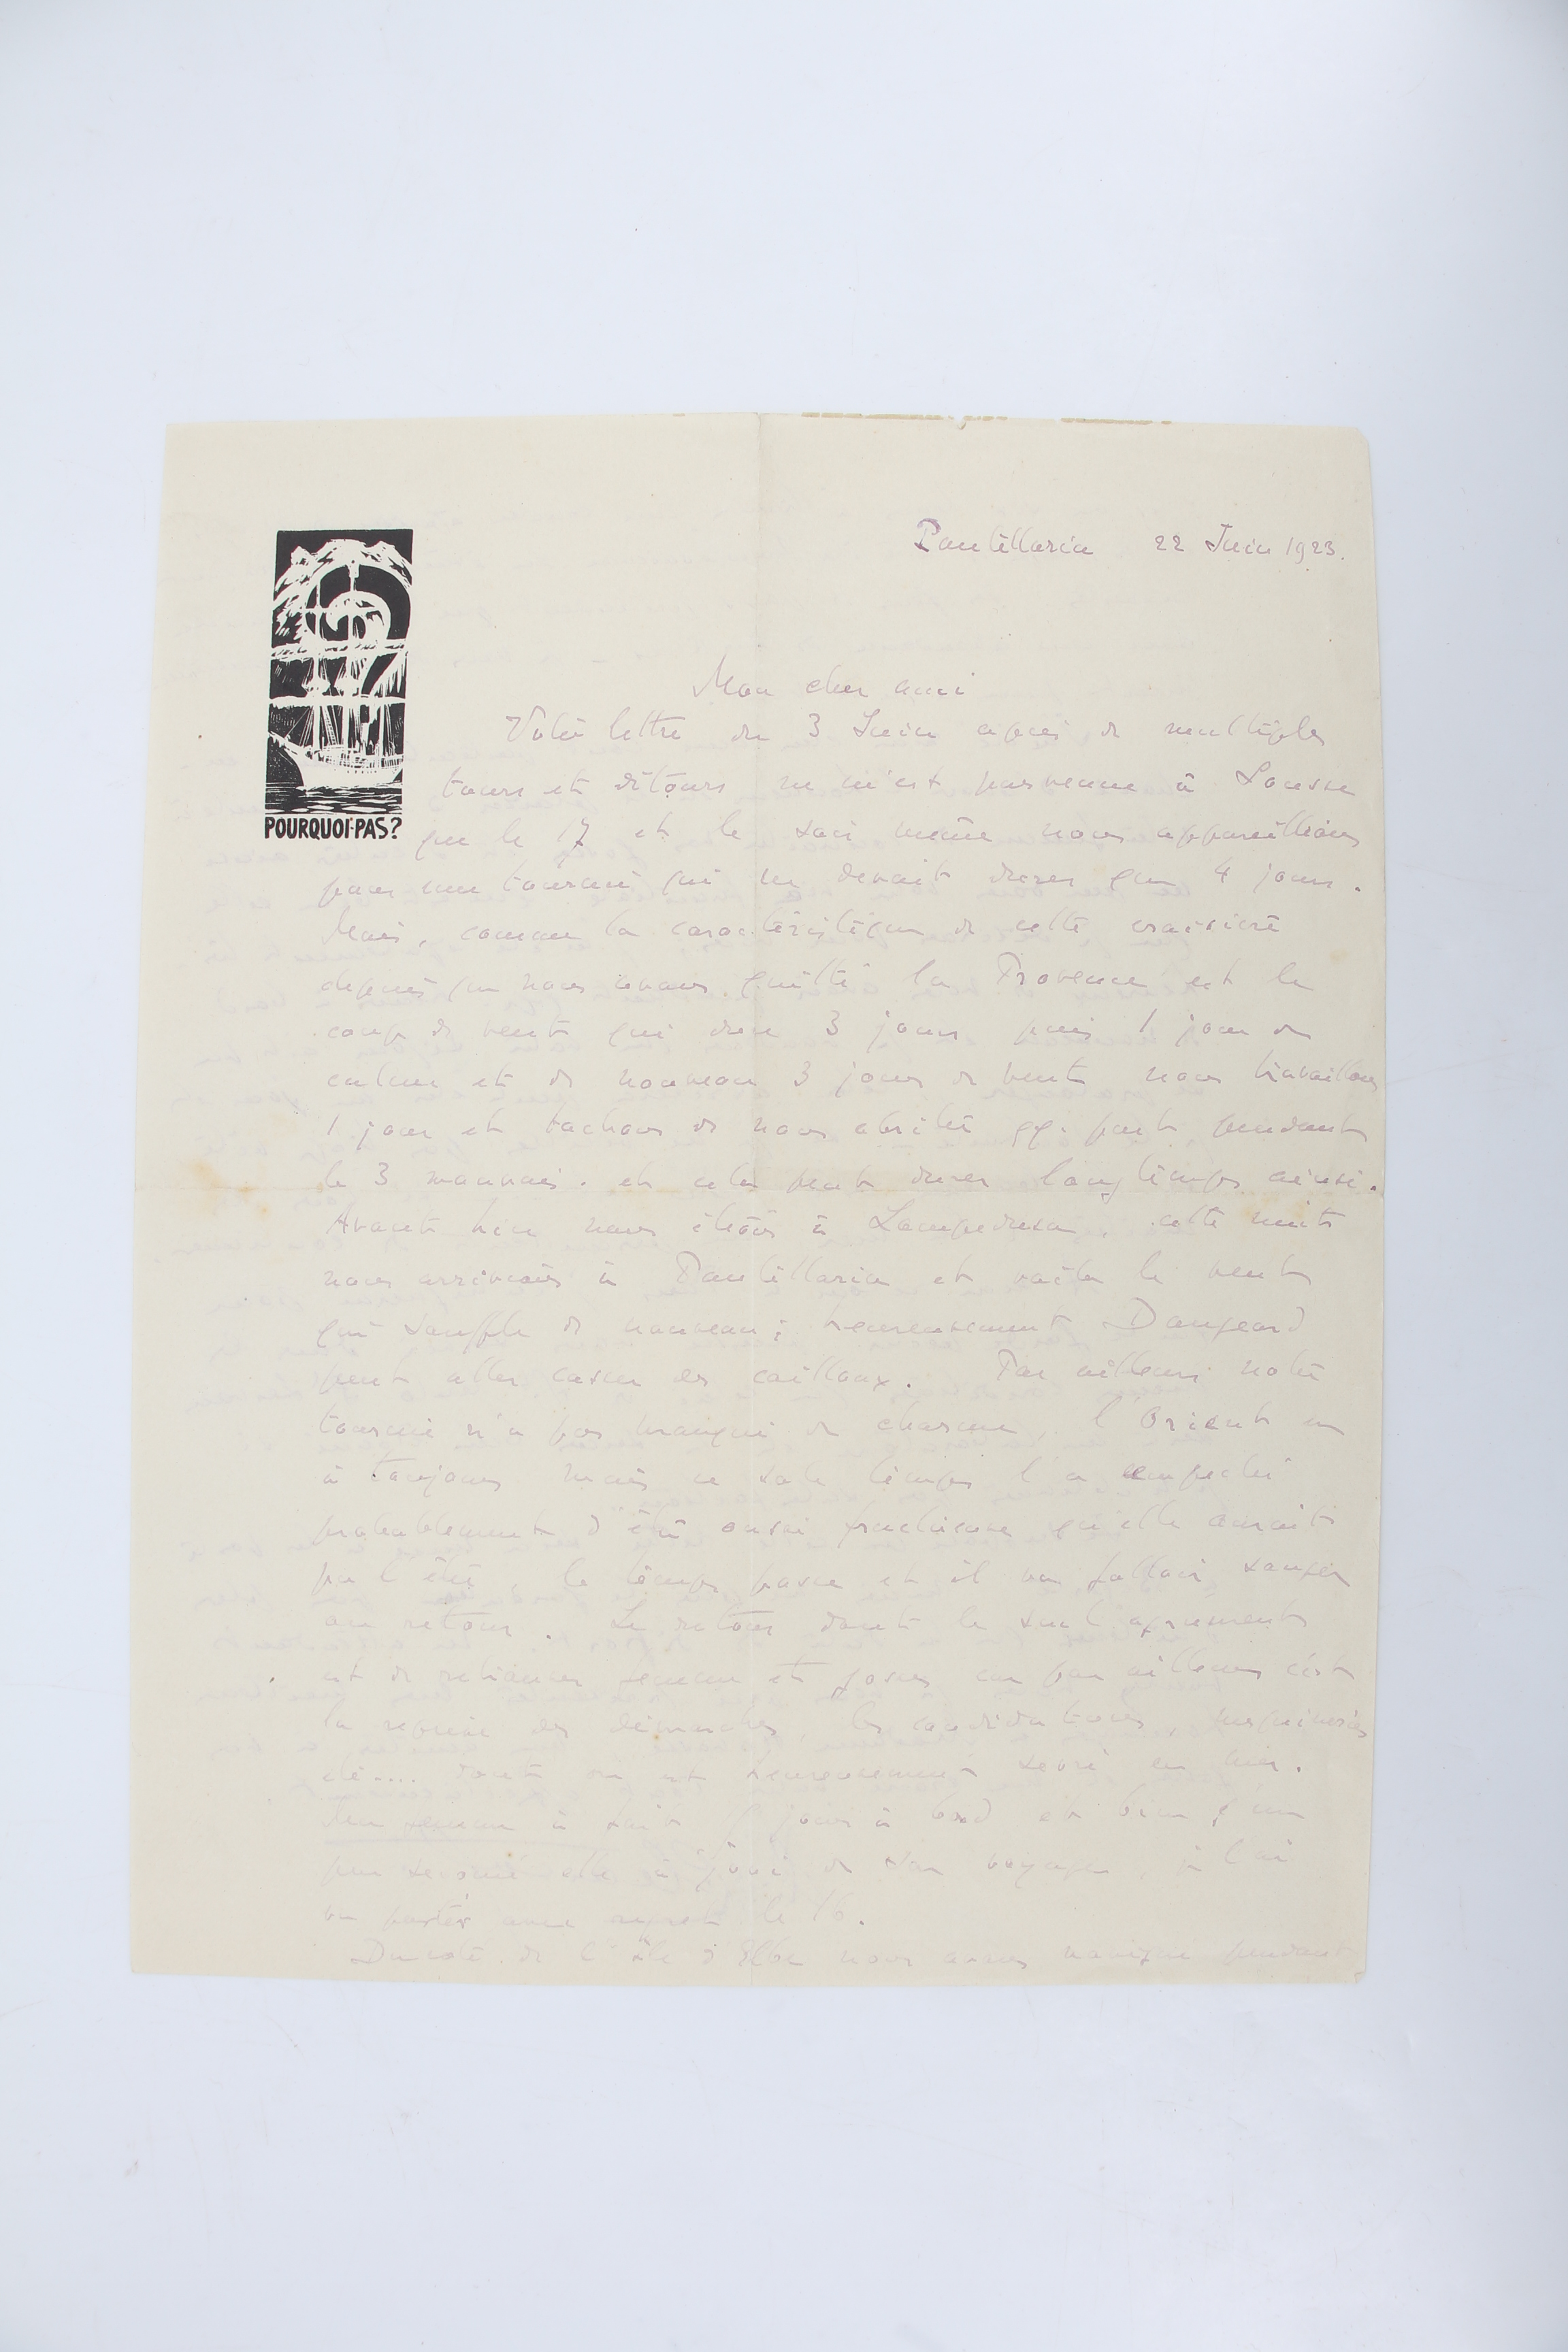 Pantellaria 22 Juin 1923.
POURQUOI-PAS?
Mon cher ami
Votre lettre du 3 Juin après de multiples
tours et détours ne m'est parvenue à Sousse
que le 17 et le soir même nous appareillions
pour une tournée qui ne devait durer que 4 jours.
Mais, comme la caractéristique de cette croisière
depuis que nous avons quitté la Provence est le
coup de vent qui dure 3 jours puis 1 jour de
calme et de nouveau 3 jours de vent nous travaillons
1 jour et tachons de nous abriter qq. part pendant
le 3 mauvais. et cela peut durer longtemps ainsi.
Avant hier nous étions à Lampedusa, cette nuit
nous arrivions à Pantellaria et voila le vent
qui souffle de nouveau; heureusement Dangeard
peut aller casser des cailloux. Par ailleurs notre
tournée n'a pas manqué de charme, l'Orient en
a toujours mais ce sale temps l'a empeché
probablement d'être aussi fructueuse qu'elle aurait
pu l'être, le temps passe et il va falloir songer
au retour. Le retour dont le seul agrément
est de retrouver femme et gosses car par ailleurs c'est
la reprise des démarches, les candidatures,
etc.... dont on est heureusement sevré en mer.
Ma femme a fait jours à bord et bien qu'un
peu secouée elle a joui de son voyage, je l'ai
vu partir avec regret le 16.
Du coté de l'île d'Elbe nous avons navigué pendant